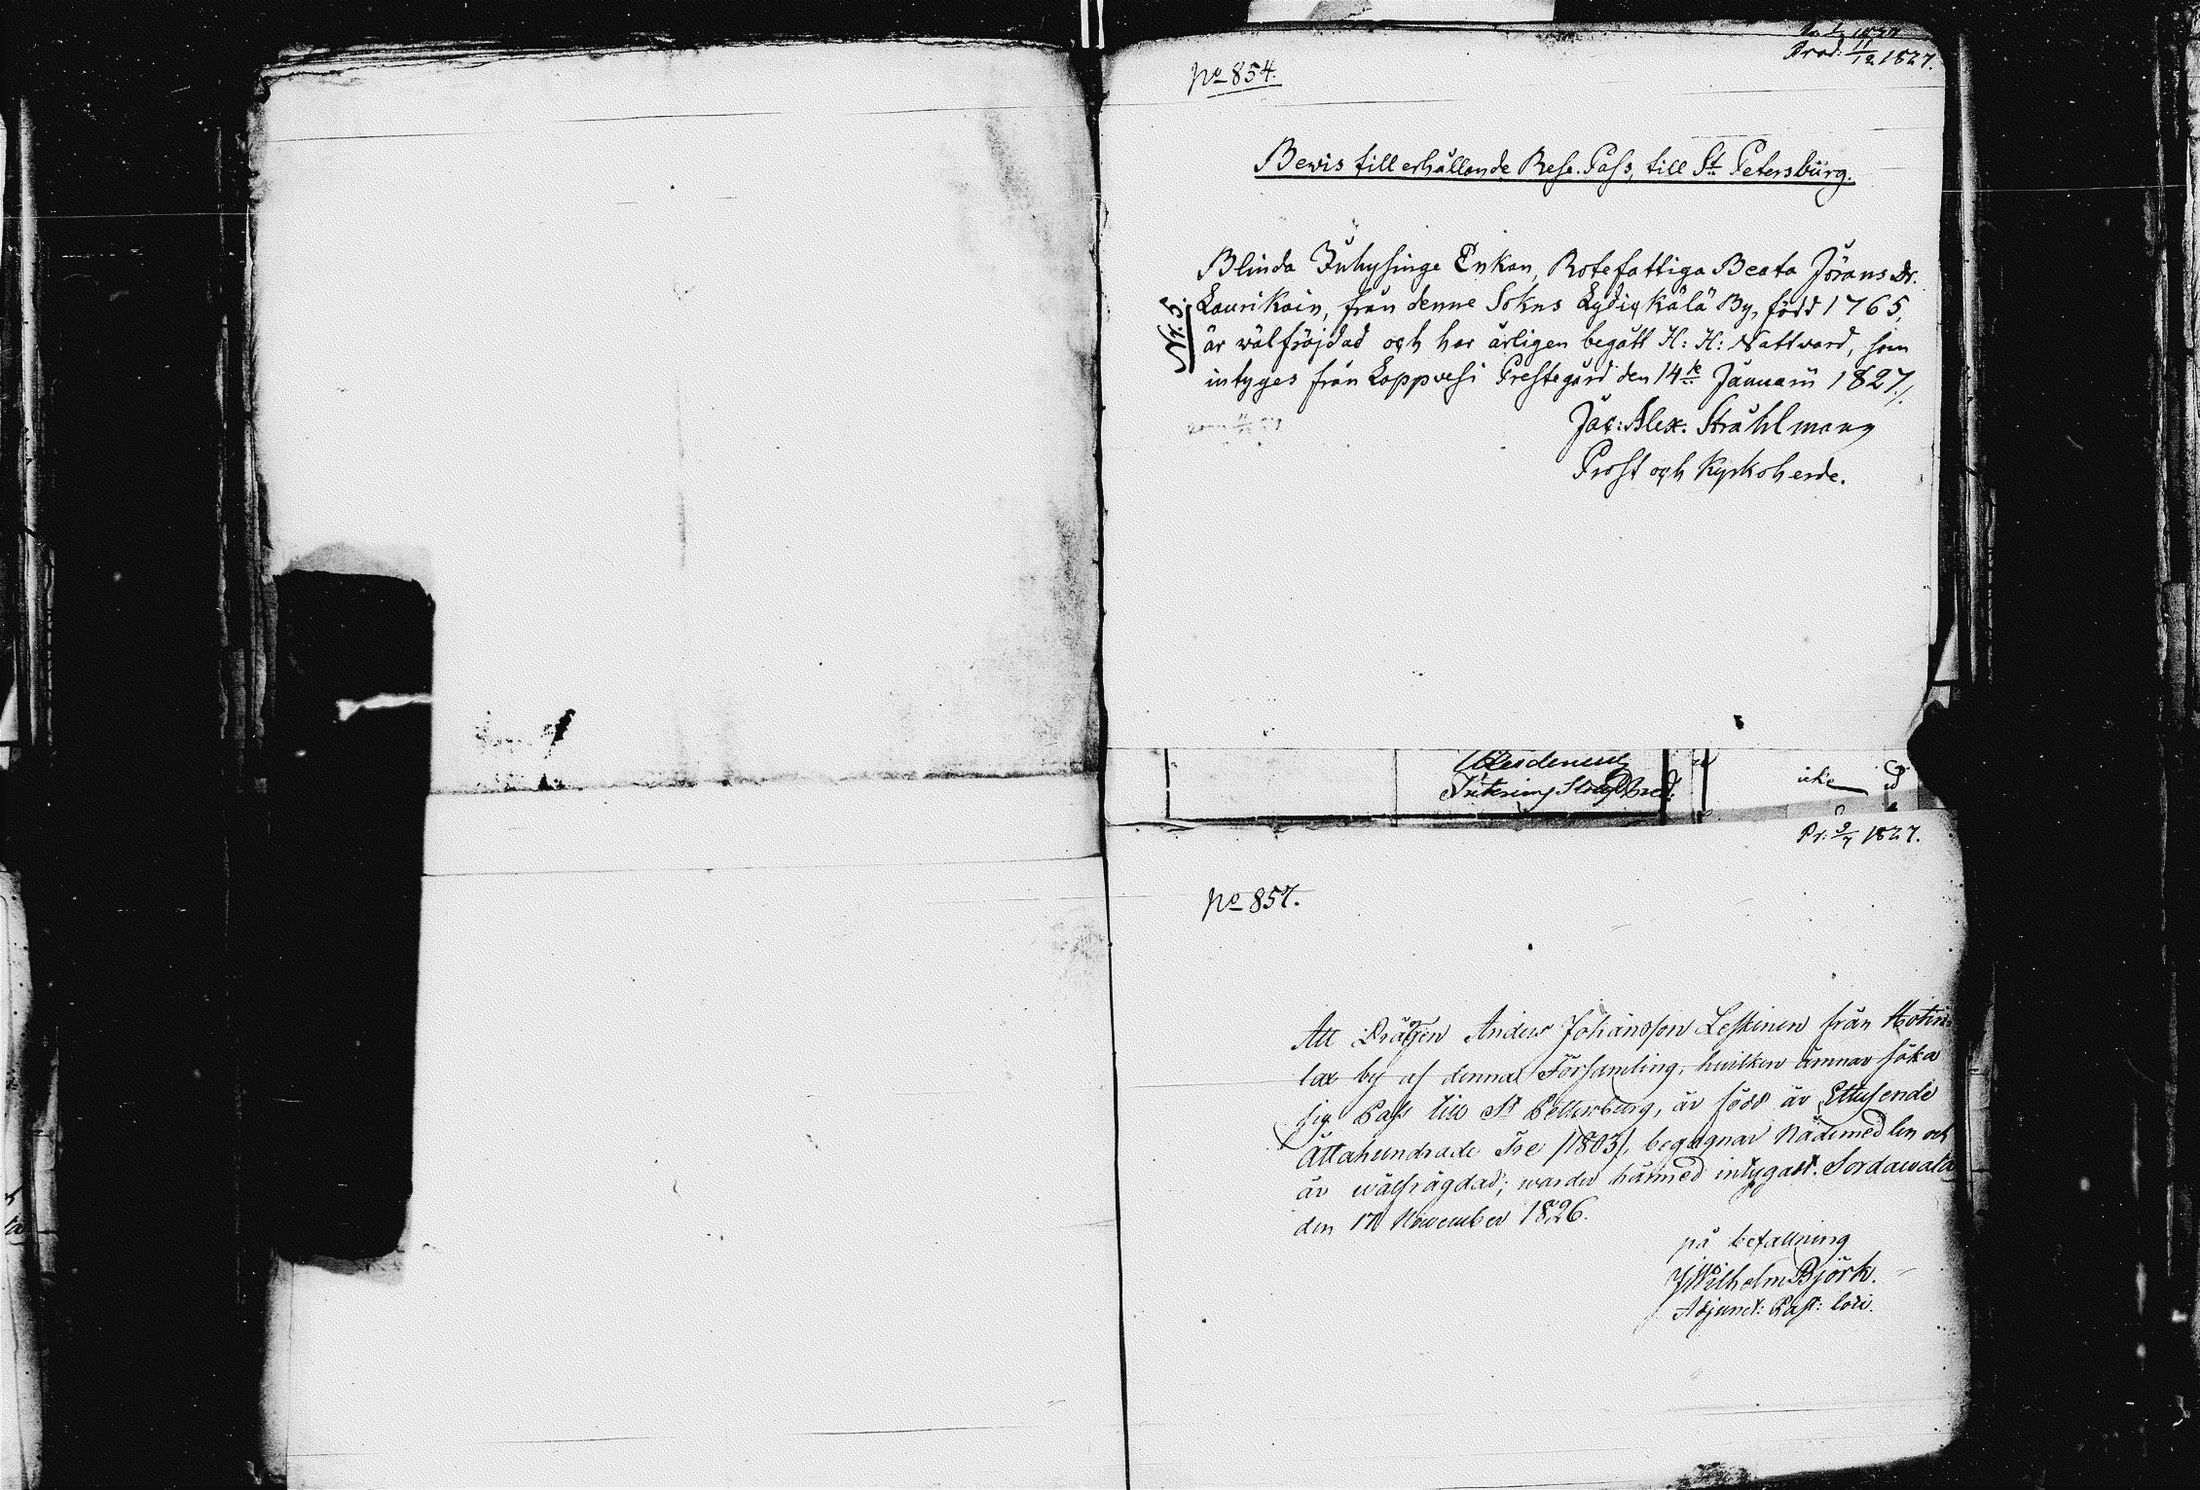 No 854.
Prod: 11/12 1827.
Bewis till erhållande Rese-Pass, till St Petersburg.
Nr. 5.
Blinda Inhysinge Enkan, Rotefattiga Beata Jörans Dr.
Laurikain, från denne Sokns Kälä By, född 1765,
är wälfräjdad och har årligen begått H: H: Nattvard, som
intyges från Lappvesi Prestegård den 14de Januarii 1827./.
Jac: Alex. Stråhlmann
Prost och Kyrkoherde.
icke
Pr: 9/7 1827.
No 857.
Att Drängen Anders Johansson Leskinen från
lax by af denna Församling, hwilken ämnar söka
sig Pass till St Pettersburg, är född år Ettusende
Åttahundrade Tre /1803/, begagnar Nådemedlen och
är wälfrägdad; warder härmed intygadt. Sordawala
den 17 November 1826.
på befallning
J Wilhelm Björk.
Adjunct: Past: loci.